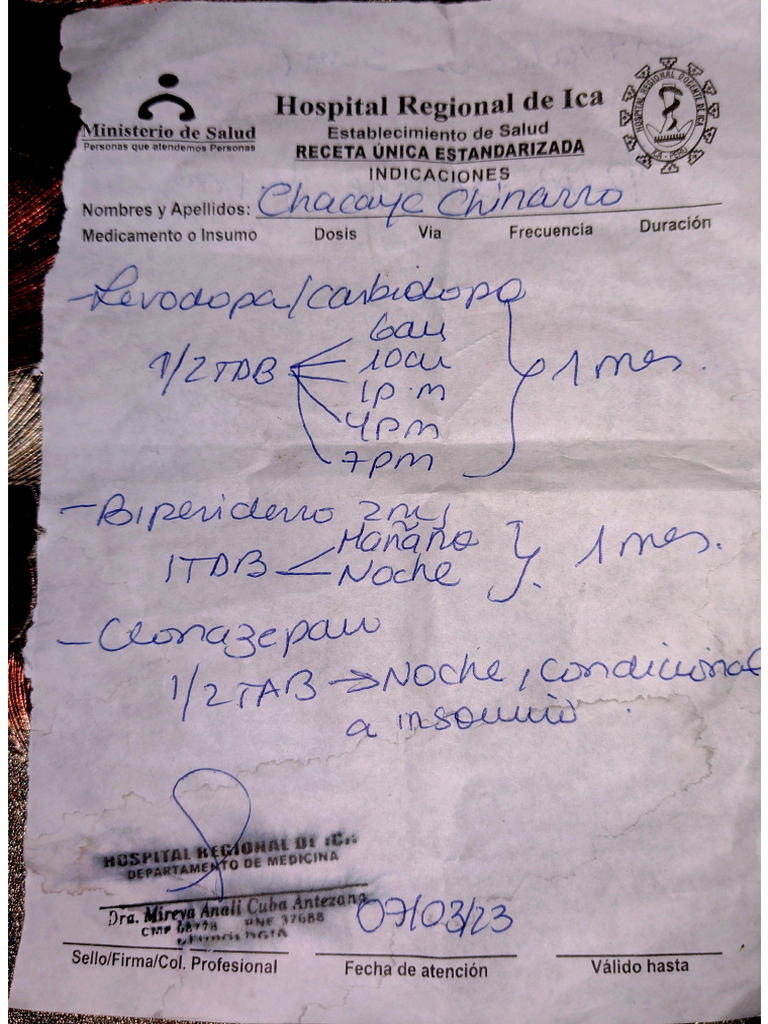 Ministerio de Salud
Personas que atendemos Personas
Hospital Regional de Ica
Establecimiento de Salud
RECETA ÚNICA ESTANDARIZADA
INDICACIONES
HOSPITAL REGIONAL DOCENTE DE ICA
ICA - PERU
Nombres y Apellidos: Chacaye Chinarro
Medicamento o Insumo Dosis Via Frecuencia Duración
- Levodopa/Carbidopa
6am
1/2 TAB 10am 1 mes.
1p.m
4pm
7pm
- Biperideno 2mg
1TAB Mañana 1 mes.
Noche
- Clonazepam
1/2 TAB → Noche, condicional
a insomnio.
HOSPITAL REGIONAL DE ICA
DEPARTAMENTO DE MEDICINA
Dra. Mireya Anali Cuba Antezana
CMP RNE 37688
07/03/23
Sello/Firma/Col. Profesional Fecha de atención Válido hasta